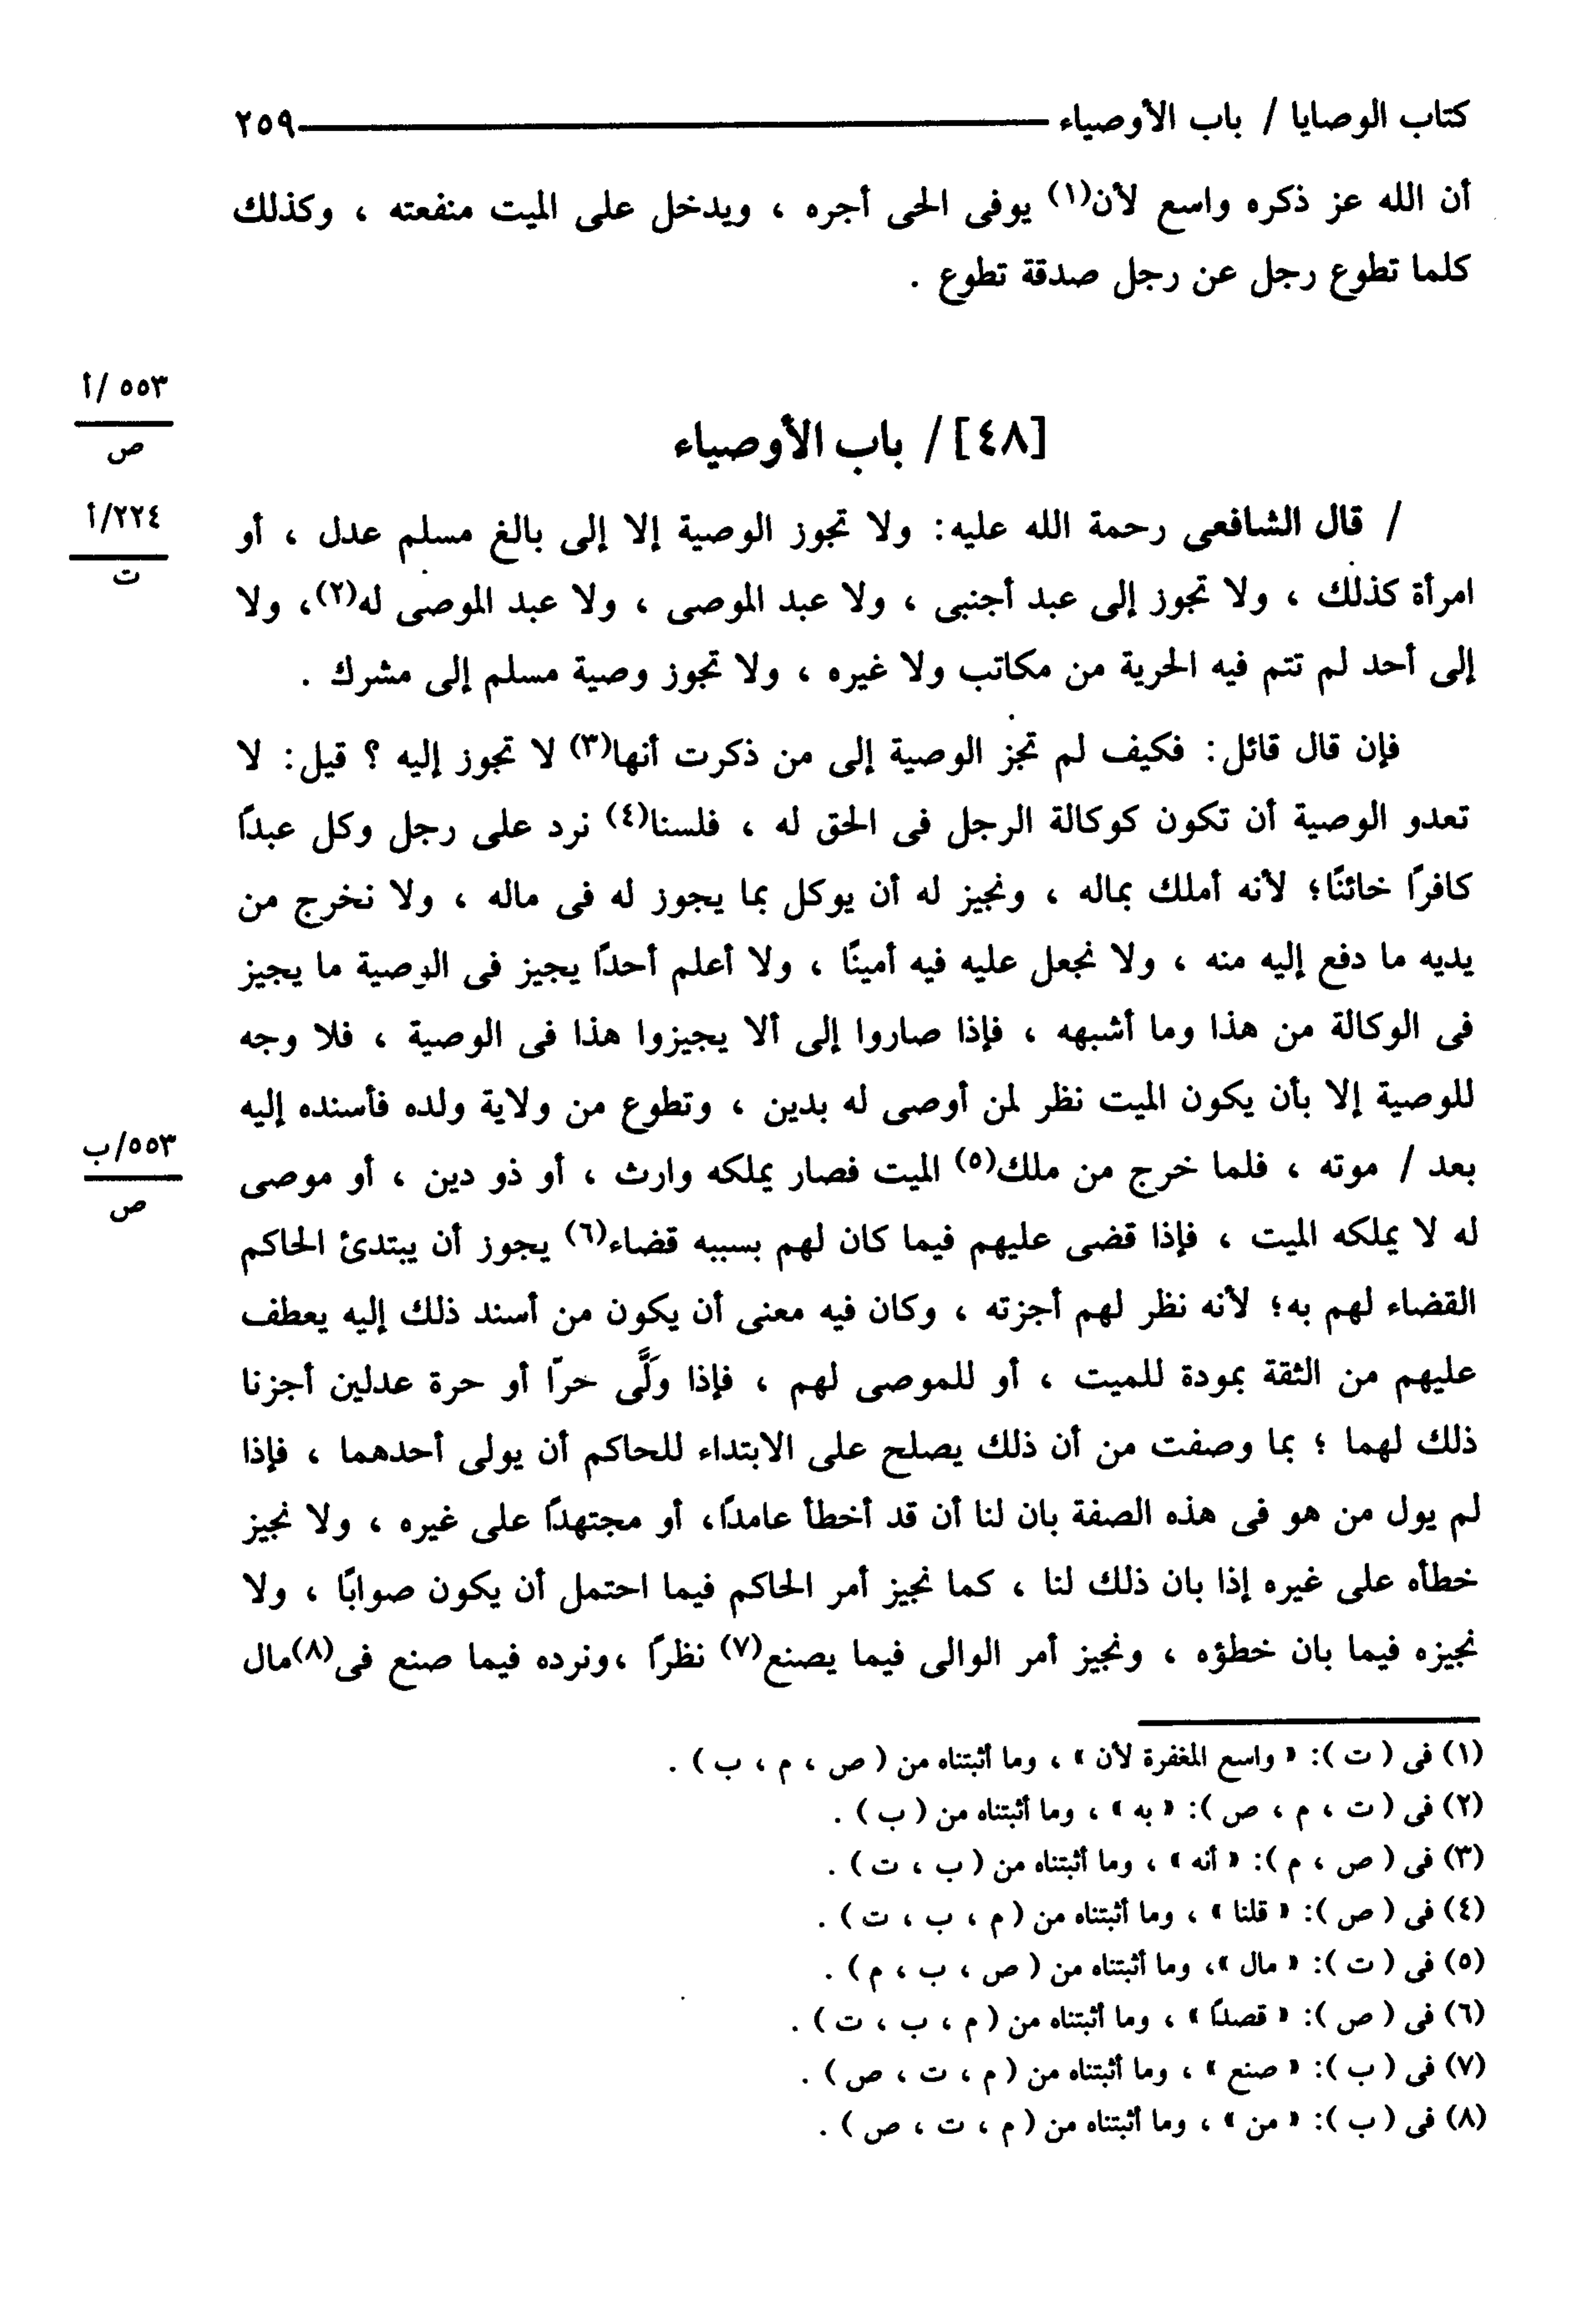 كتاب الوصايا / باب الأوصياء ٢٥٩
أن الله عز ذكره واسع لأن(١) يوفى الحى أجره ، ويدخل على الميت منفعته ، وكذلك
كلما تطوع رجل عن رجل صدقة تطوع .
٥٥٣ /أ
ص
[٤٨] / باب الأوصياء
٢٢٤/أ
ت
/ قال الشافعى رحمة الله عليه: ولا تجوز الوصية إلا إلى بالغ مسلم عدل ، أو
امرأة كذلك ، ولا تجوز إلى عبد أجنبى ، ولا عبد الموصى ، ولا عبد الموصى له(٢)، ولا
إلى أحد لم تتم فيه الحرية من مكاتب ولا غيره ، ولا تجوز وصية مسلم إلى مشرك .
فإن قال قائل: فكيف لم تجز الوصية إلى من ذكرت أنها(٣) لا تجوز إليه ؟ قيل: لا
تعدو الوصية أن تكون كوكالة الرجل فى الحق له ، فلسنا(٤) نرد على رجل وكل عبدًا
كافرًا خائنًا؛ لأنه أملك بماله ، ونجيز له أن يوكل بما يجوز له فى ماله ، ولا نخرج من
يديه ما دفع إليه منه ، ولا نجعل عليه فيه أمينًا ، ولا أعلم أحدًا يجيز فى الوصية ما يجيز
فى الوكالة من هذا وما أشبهه ، فإذا صاروا إلى ألا يجيزوا هذا فى الوصية ، فلا وجه
للوصية إلا بأن يكون الميت نظر لمن أوصى له بدين ، وتطوع من ولاية ولده فأسنده إليه
٥٥٣/ب
ص
بعد / موته ، فلما خرج من ملك(٥) الميت فصار يملكه وارث ، أو ذو دين ، أو موصى
له لا يملكه الميت ، فإذا قضى عليهم فيما كان لهم بسببه قضاء(٦) يجوز أن يبتدئ الحاكم
القضاء لهم به؛ لأنه نظر لهم أجزته ، وكان فيه معنى أن يكون من أسند ذلك إليه يعطف
عليهم من الثقة بمودة للميت ، أو للموصى لهم ، فإذا ولَّى حرّا أو حرة عدلين أجزنا
ذلك لهما ؛ بما وصفت من أن ذلك يصلح على الابتداء للحاكم أن يولى أحدهما ، فإذا
لم يول من هو فى هذه الصفة بان لنا أن قد أخطأ عامدًا، أو مجتهدًا على غيره ، ولا نجيز
خطأه على غيره إذا بان ذلك لنا ، كما نجيز أمر الحاكم فيما احتمل أن يكون صوابًا ، ولا
نجيزه فيما بان خطؤه ، ونجيز أمر الوالى فيما يصنع(٧) نظرًا ،ونرده فيما صنع فى(٨)مال
(١) فى ( ت ): « واسع المغفرة لأن » ، وما أثبتناه من ( ص ، م ، ب ) .
(٢) فى ( ت ، م ، ص ): « به » ، وما أثبتناه من ( ب ) .
(٣) فى ( ص ، م ): « أنه » ، وما أثبتناه من ( ب ، ت ) .
(٤) فى ( ص ): « قلنا » ، وما أثبتناه من ( م ، ب ، ت ) .
(٥) فى ( ت ): « مال »، وما أثبتناه من ( ص ، ب ، م ) .
(٦) فى ( ص ): « قصدًا » ، وما أثبتناه من ( م ، ب ، ت ) .
(٧) فى ( ب ): « صنع » ، وما أثبتناه من ( م ، ت ، ص ) .
(٨) فى ( ب ): « من » ، وما أثبتناه من ( م ، ت ، ص ) .